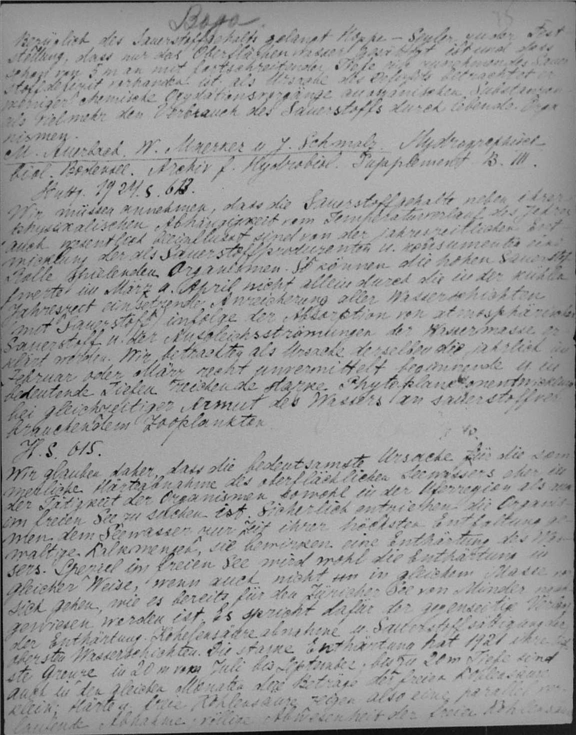 Bezüglich des Sauerstoffgehalts gelangt Hoppe-Seyler zu der Fest
stellung, dass nur das Oberflächenwasser gesättigt ist und dass
schon von 5 m an mit fortschreitender Tiefe ein zunehmendes Sauer
stoffdefizit vorhanden ist als Ursache des
chemische Oxydationsvorgänge an organischen Substanzen
als vielmehr den Verbrauch des Sauerstoffs durch lebende Orga
nismen.
M. Auerbach, W. Maerker u. J. Schmalz. Hydrographisch
biol. Bodensee. Archiv f. Hydrobiol. Supplement B. III.
1924. S. 613.
Wir müssen annehmen, dass die Sauerstoffgehalte neben ihrer
physikalischen Abhängigkeit vom Temperaturverlauf des Jahres
auch wesentlich beeinflusst sind von der jahreszeitlichen Ent
wicklung der als Sauerstoffproduzenten u. konsumenten eine
Rolle spielenden Organismen. So können die hohen Sauerstoff
werte im März u. April nicht allein durch die in der kühlen
Jahreszeit eintretende Anreicherung aller Wasserschichten
mit Sauerstoff infolge der Absorption von atmosphärischem
Sauerstoff u. der Ausgleichsströmungen der Wassermasse er
klärt werden. Wir betrachten als Ursache derselben die jährlich im
Februar oder März recht unvermittelt beginnende u. in
bedeutende Tiefen reichende starke Phytoplanktonentwicklung
bei gleichzeitiger Armut des Wassers an sauerstoffver
brauchendem Zooplankton.
S. 615.
Wir glauben daher, dass die bedeutsamste Ursache für die som
merliche Härteabnahme des oberflächlichen Seewassers aber in
der Tätigkeit der Organismen sowohl in der Uferregion als auch
im freien See zu suchen ist. Sicherlich entziehen die Organis
men dem Seewasser zur Zeit ihrer höchsten Entfaltung ge
waltige Kalkmengen, sie bewirken eine Enthärtung des Was
sers. Speziell im freien See wird wohl die Enthärtung in
gleicher Weise, wenn auch nicht in gleichem Masse vor
sich gehen, wie es bereits für den Zürcher See von Minder nach
gewiesen worden ist. Es spricht dafür der gegenseitige Verlauf
der Enthärtung, Kohlensäureabnahme u. Sauerstoffsättigung der
obersten Wasserschichten. Die starke Enthärtung hat 1921 ihre
ste Grenze in 20 m vom Juli bis September, bis zu 20 m Tiefe sind
auch in den gleichen Monaten die Beträge der freien Kohlensäure
klein. Härte, freie Kohlensäure zeigen also eine parallel ver
laufende Abnahme, völlige Abwesenheit der freien Kohlensäure